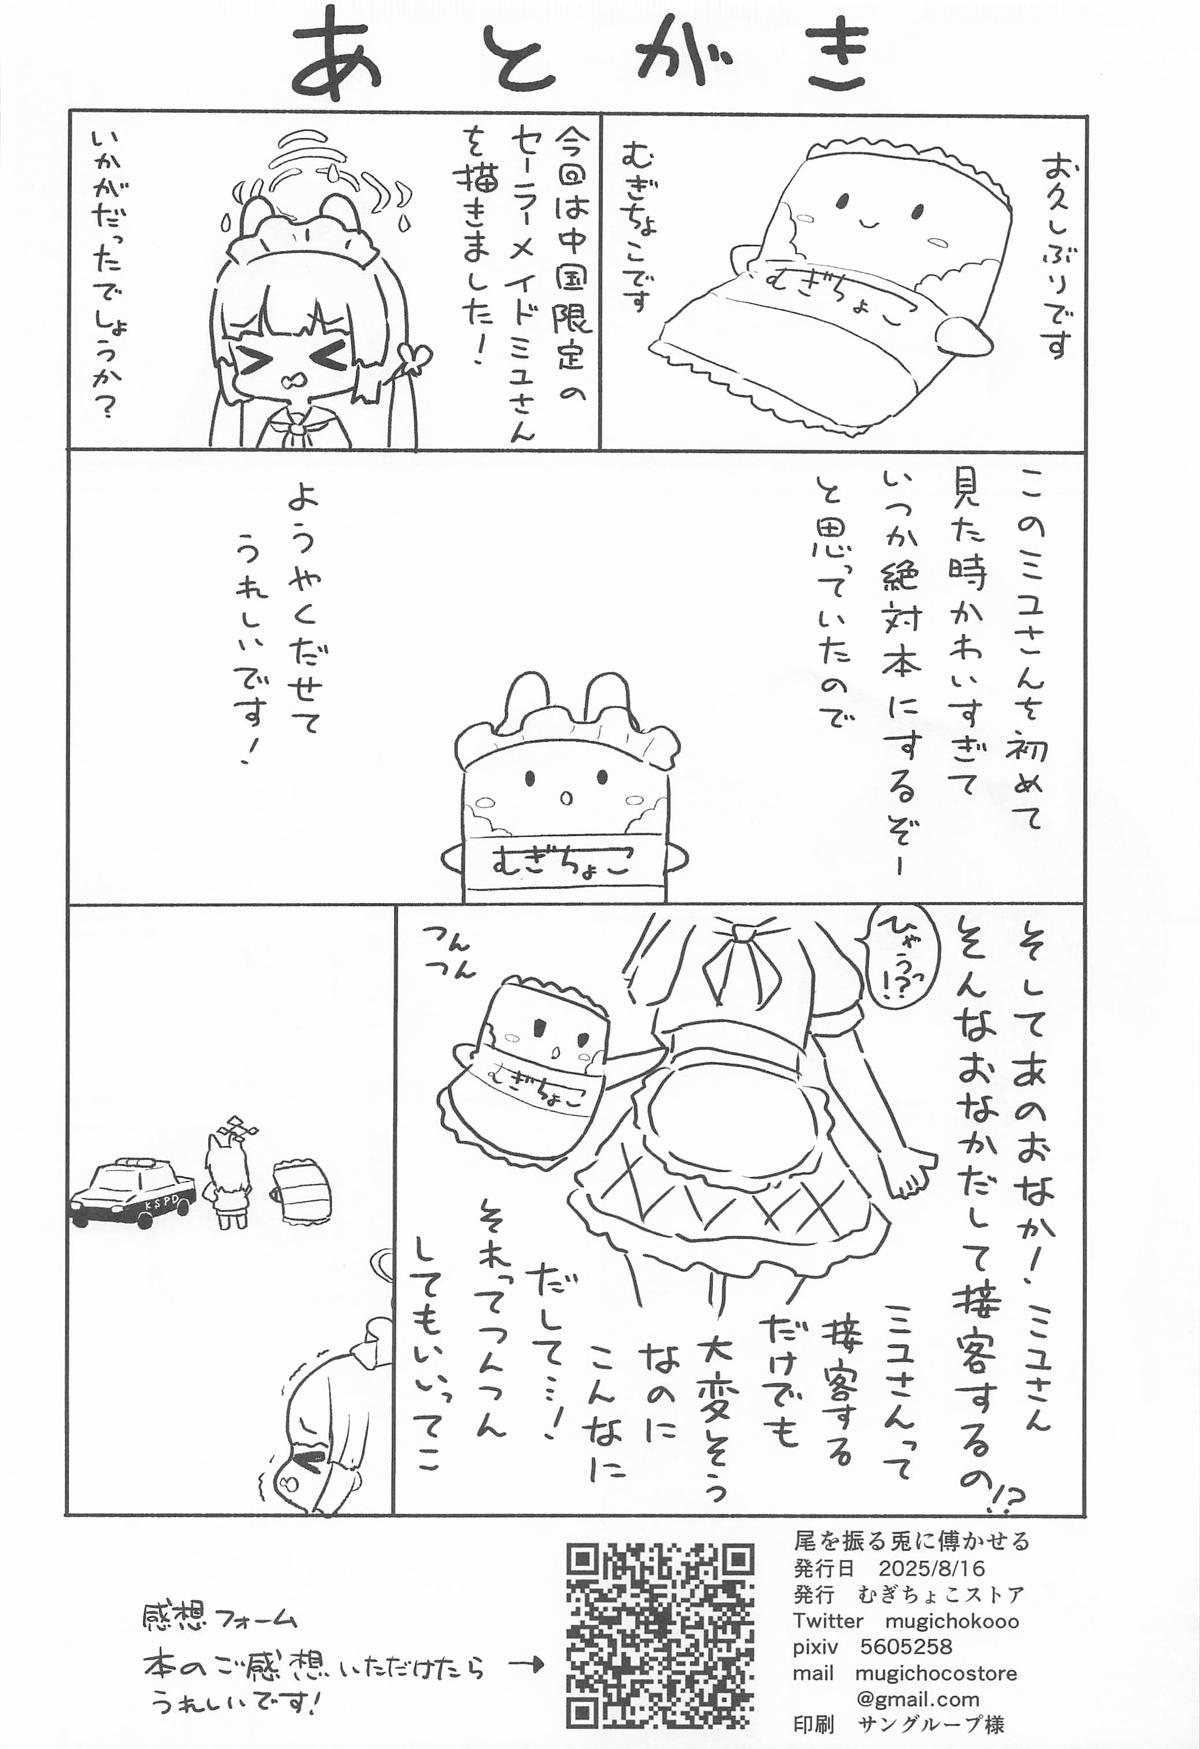 あとがき
お久しぶりです
むぎちょこ
むぎちょこです
今回は中国限定の
セーラーメイドミユさん
を描きました!
いかがだったでしょうか?
このミユさんを初めて
見た時かわいすぎて
いつか絶対本にするぞー
と思っていたので
むぎちょこ
ようやくだせて
うれしいです!
そしてあのおなか!ミユさん
そんなおなかだして接客するの!?
ひゃうっ!?
つん
つん
むぎちょこ
ミユさんって
接客する
だけでも
大変そう
なのに
こんなに
だして…!
それってつんつん
してもいいってこ
KSPD
感想フォーム
本のご感想いただけたら
うれしいです!
→
尾を振る兎に傅かせる
発行日 2025/8/16
発行 むぎちょこストア
Twitter mugichokooo
pixiv 5605258
mail mugichocostore
@gmail.com
印刷 サングループ様